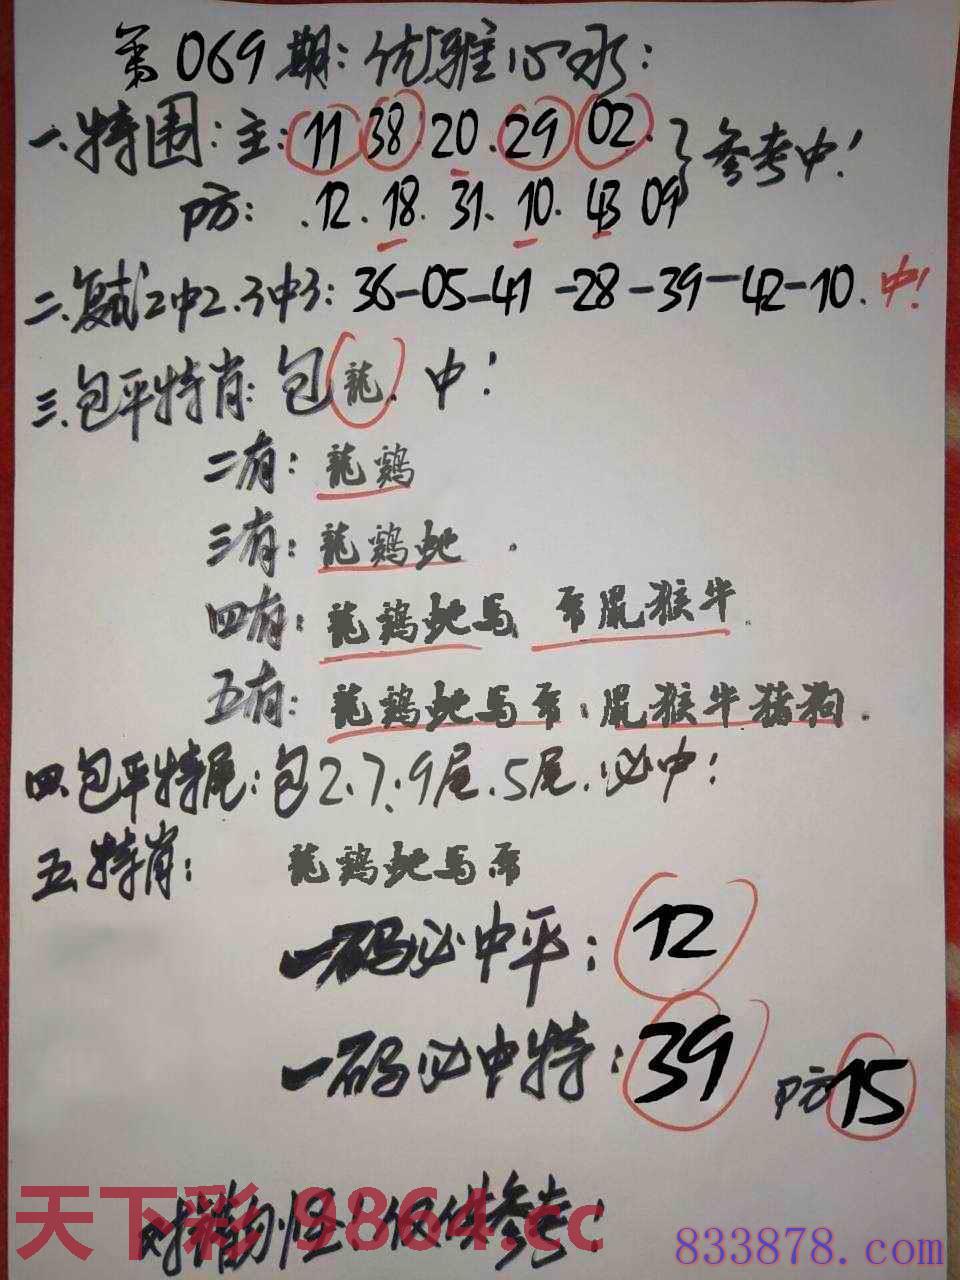 第069期:优雅心水:
一.特围:主:11 38.20.29.02.}参考中!
防:.12.18.31.10.43 09
二.复试2中2.3中3:36-05-41-28-39-42-10.中!
三.包平特肖:包龍.中!
二有:龍鸡
三有:龍鸡蛇.
四有:龍鸡蛇马 鼠猴牛.
五有:龍鸡蛇马 鼠猴牛猪狗.
四.包平特尾:包2.7.9尾.5尾.必中!
五.特肖:龍鸡蛇马
一码必中平:12
一码必中特:39 防15
对错勿怪!仅供参考!
天下彩 9864.cc
833878.com